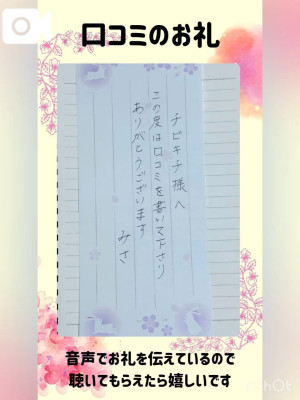 口コミのお礼
チビキチ様へ
この度は口コミを書いて下さり
ありがとうございます
みさ
音声でお礼を伝えているので
聴いてもらえたら嬉しいです